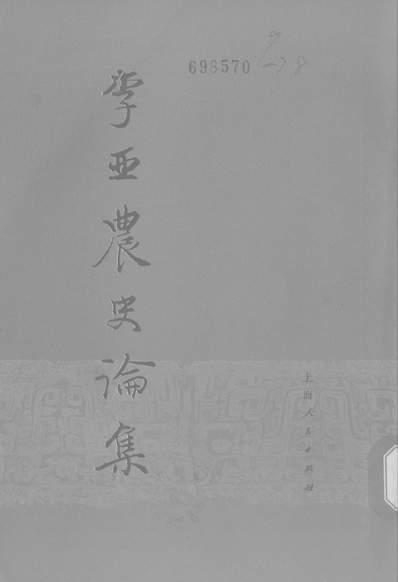 698570
李亚農史論集
上海人民出版社